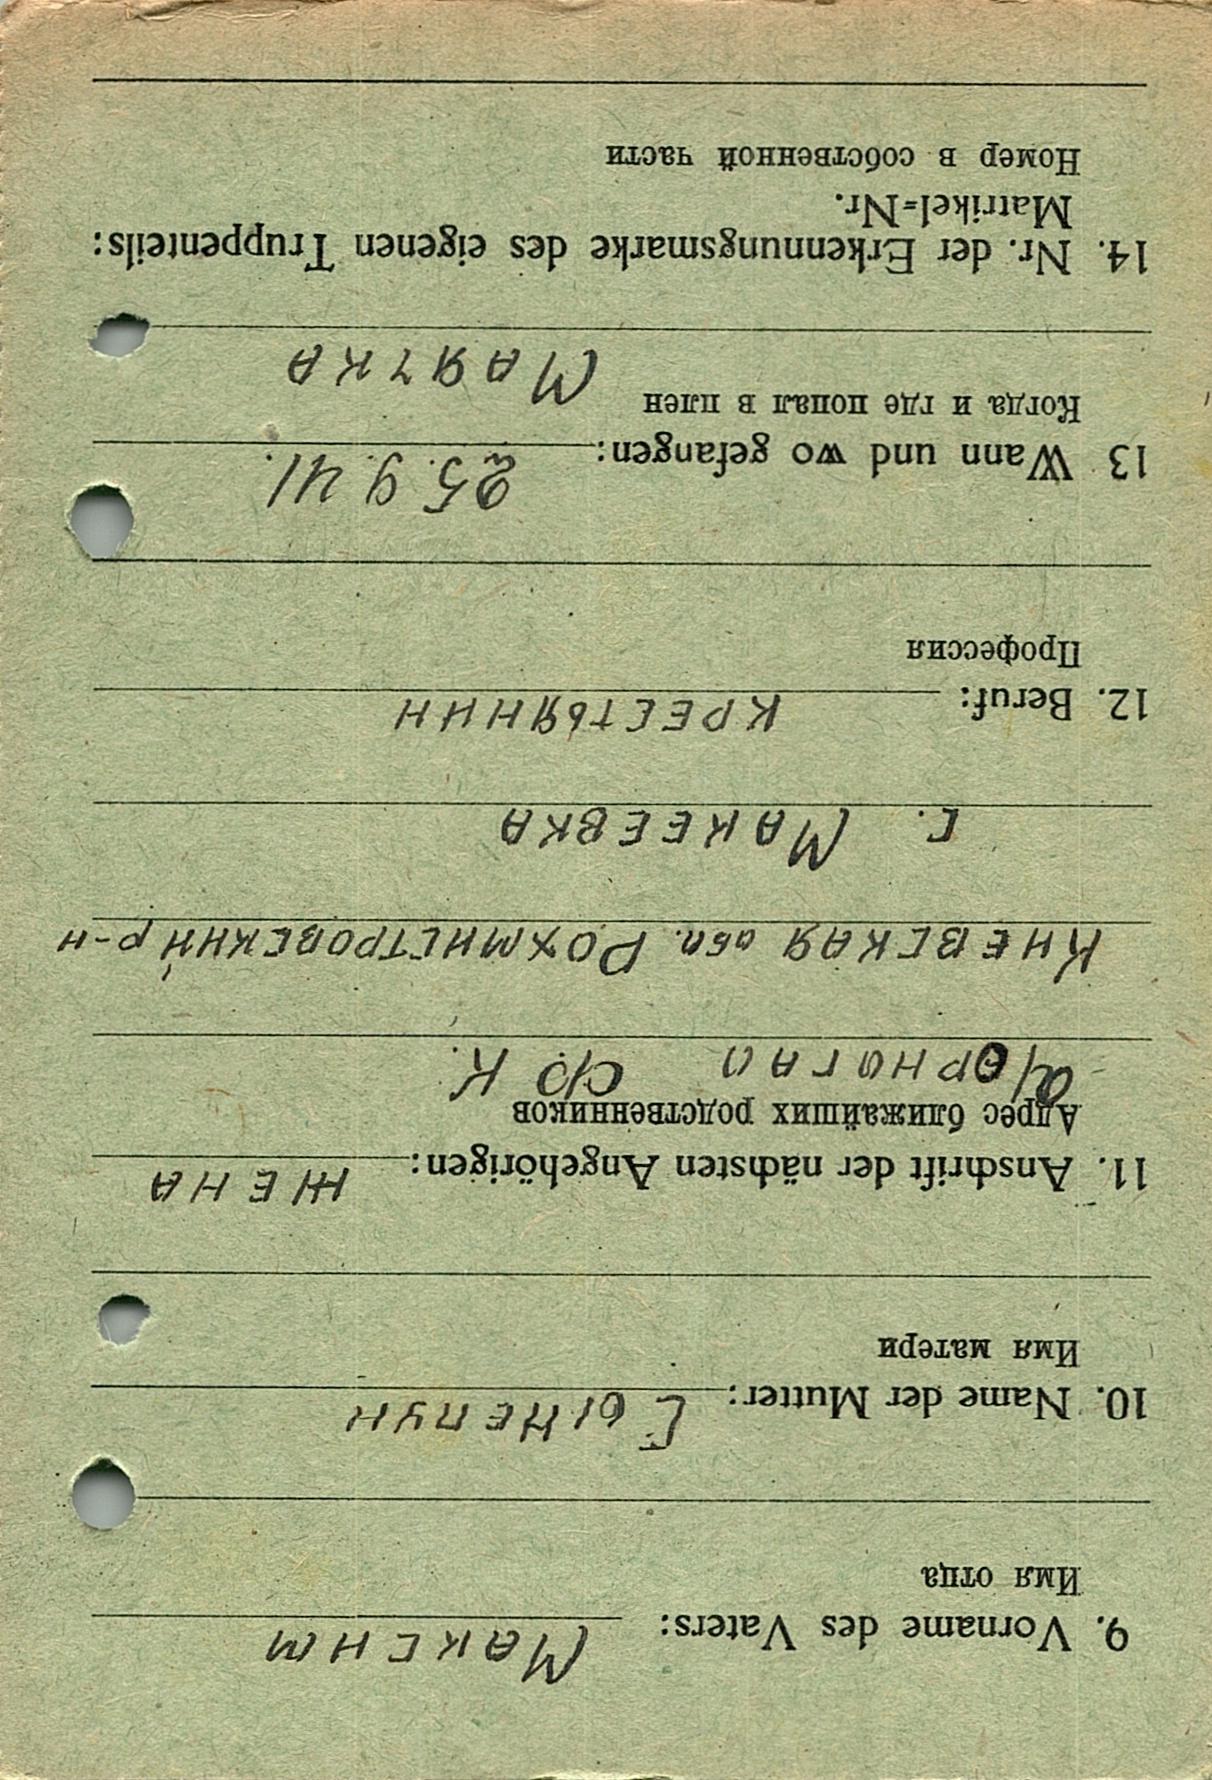 9. Vorname des Vaters: Максим
Имя отца
10. Name der Mutter:
Имя матери
11. Anschrift der nächsten Angehörigen: жена
Адрес ближайших родственников
Ф. К.
Киевская обл. Рохмистровский р-н
с. Макеевка
12. Beruf: крестьянин
Профессия
13 Wann und wo gefangen: 25.9.41.
Когда и где попал в плен Маячка
14. Nr. der Erkennungsmarke des eigenen Truppenteils:
Matrikel=Nr.
Номер в собственной части